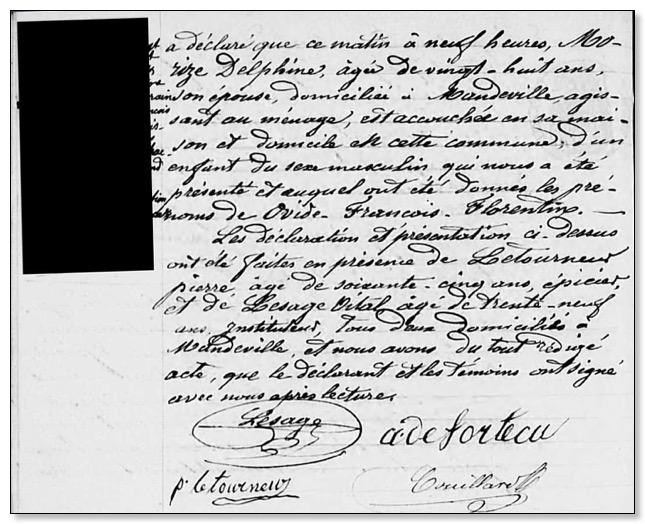 a déclaré que ce matin à neuf heures, Mo-
rize Delphine, âgée de vingt-huit ans,
son épouse, domiciliée à Mandeville, agis-
sant au ménage, est accouchée en sa mai-
son et domicile en cette commune, d'un
enfant du sexe masculin, qui nous a été
présenté et auquel ont été donnés les pré-
noms de Ovide-François-Florentin. —
Les déclaration et présentation ci-dessus
ont été faites en présence de Letourneur
pierre âgé de soixante-cinq ans, épicier,
et de Lesage Vital âgé de trente-neuf
ans, Instituteur, tous deux domiciliés à
Mandeville, et nous avons du tout rédigé
acte, que le déclarant et les témoins ont signé
avec nous après lecture.
Lesage
p. letourneur